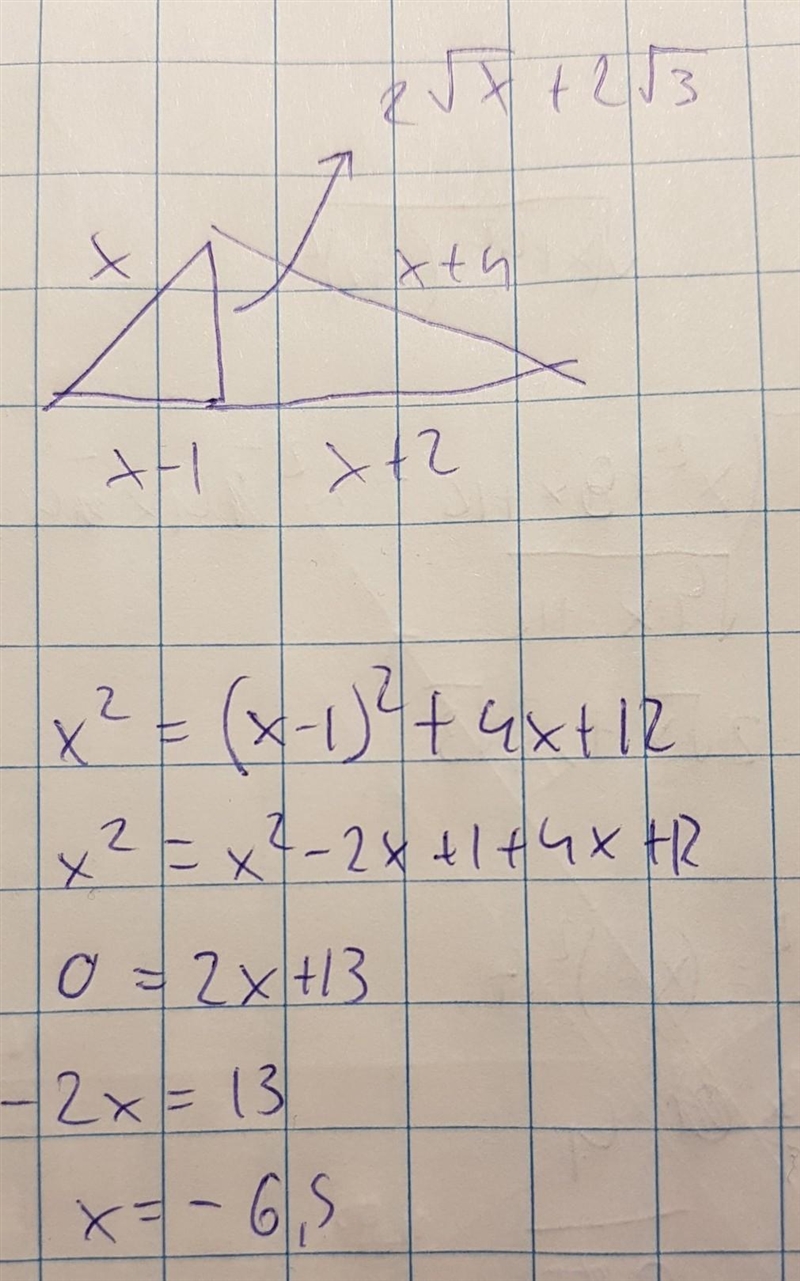 2√x + 2√3
x
x+4
x-1
x+2
x² = (x-1)² + 4x+12
x² = x² - 2x +1 +4x +12
0 = 2x+13
-2x = 13
x = - 6,5